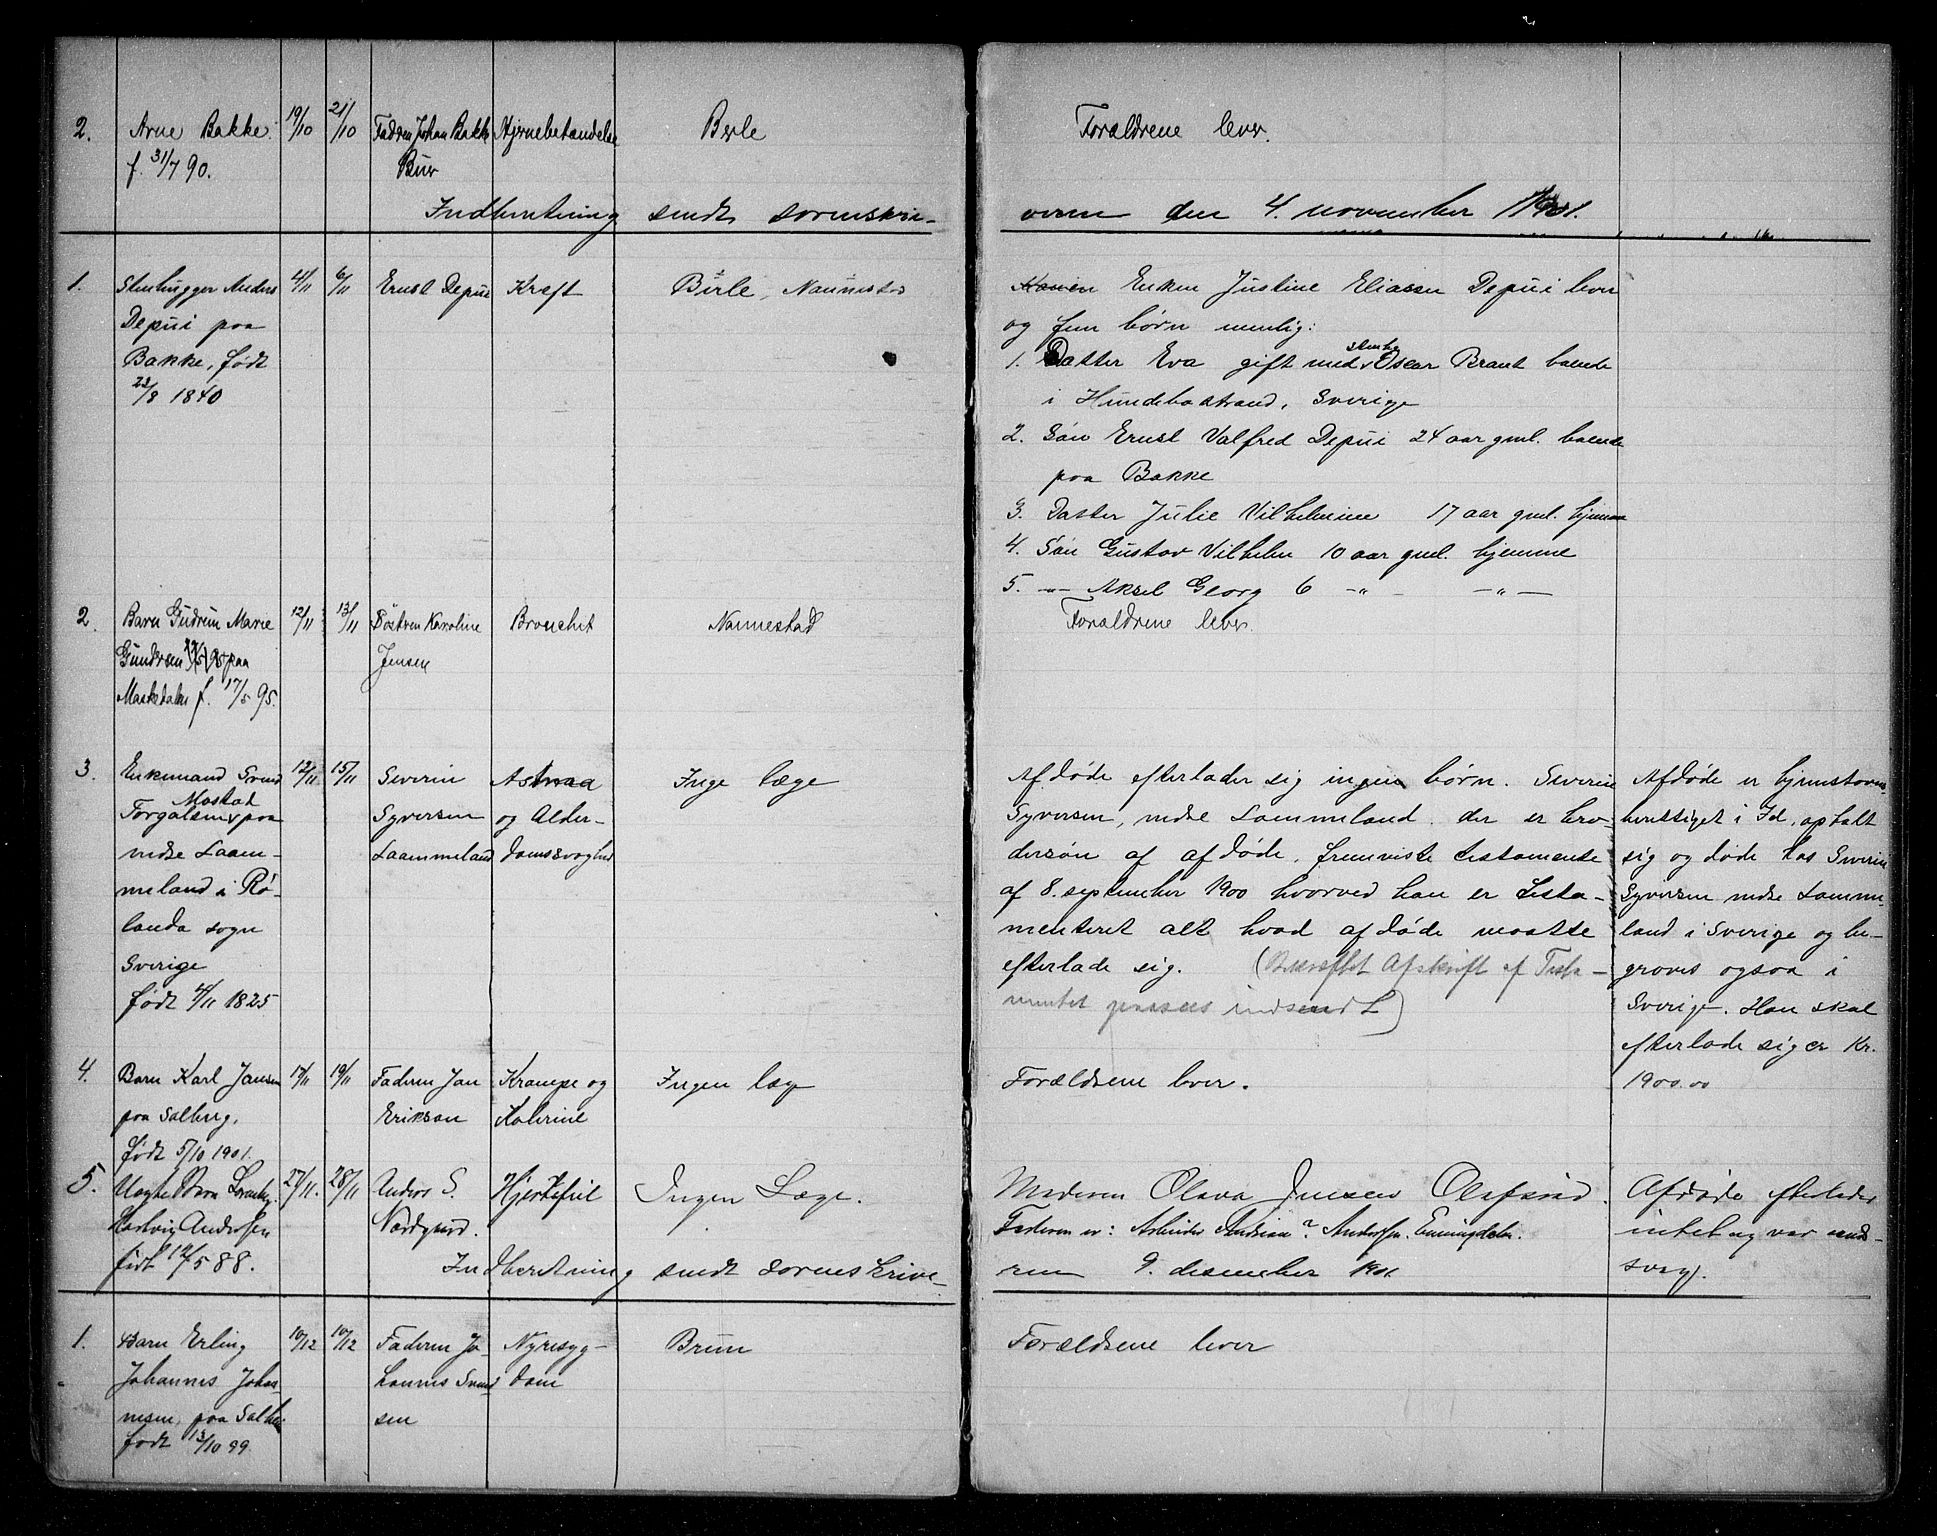 2. Arne Bakke 19/10 21/10 Fadren Johan Bakke Hjernebetændelse Berle Forældrene lever.
f. 31/7 90. Buer
Indberetning sendt sorenskri-
veren den 4. november 1901.
1. Stenhugger Anders 4/11 6/11 Ernst Depui Kræft Berle, Nannestad
Depui paa
Bakke, født
23/8 1840
Konen Enken Justine Eliasen Depui lever
og fem børn nemlig:
1. Datter Eva gift med Oscar Brant boende
i Hunnebostrand, Sverige
2. Søn Ernst Valfred Depui 24 aar gml. boende
paa Bakke
3. Datter Julie Vilhelmine 17 aar gml. hjemme
4. Søn Gustav Vilhelm 10 aar gml. hjemme
5. -"- Aksel Georg 6 -"- -"-
2. Barn Gudrun Marie 12/11 13/11 Søstren Karoline Bronchit Nannestad Forældrene lever.
Gundersen paa Jensen
f. 17/5 95.
3. Enkemand Svend 12/11 15/11 Severin Astma Inge læge
Mostad
Torgalsen paa Syversen og Alder-
nedre Laam- Laammeland domssvaghed
meland i Rø-
landa sogn
Sverige
født 4/11 1825
Afdøde efterlader sig ingen børn. Severin
Syversen, nedre Lammeland der er bro-
dersøn af afdøde, fremviste testamente
af 8. september 1900 hvorved han er testa-
menteret alt hvad afdøde maatte
efterlade sig. (Bekræftet Afskrift af Testa-
mentet indsendt)
Afdøde er hjemstavns-
berettiget i Id, opholt
sig og døde hos Severin
Syversen nedre Lamme-
land i Sverige og be-
graves ogsaa i
Sverige. Han skal
efterlade sig ca Kr.
1900.00
4. Barn Karl Jansen 17/11 19/11 Faderen Jan Krampe og Ingen læge Forældrene lever.
paa Salberg, Eriksen Kolerine
født 5/10 1901.
5. Barn 27/11. 28/11 Anders S. Hjertefeil Ingen Læge. Moderen Olava Jensen
Hartvig Andersen Nordgaard. Faderen er: Arbeider ? Andersen.
født 12/5 88.
Afdøde efterlader
intet og var aands-
svag.
Indberetning sendt sorenskrive-
ren 9. desember 1901
1. Barn Erling 10/12 10/12 Faderen Jo- Nyresyg- Brun Forældrene lever
Johannes Johan- hannes Svend- dom
nesen, paa sen
født 13/10 99.